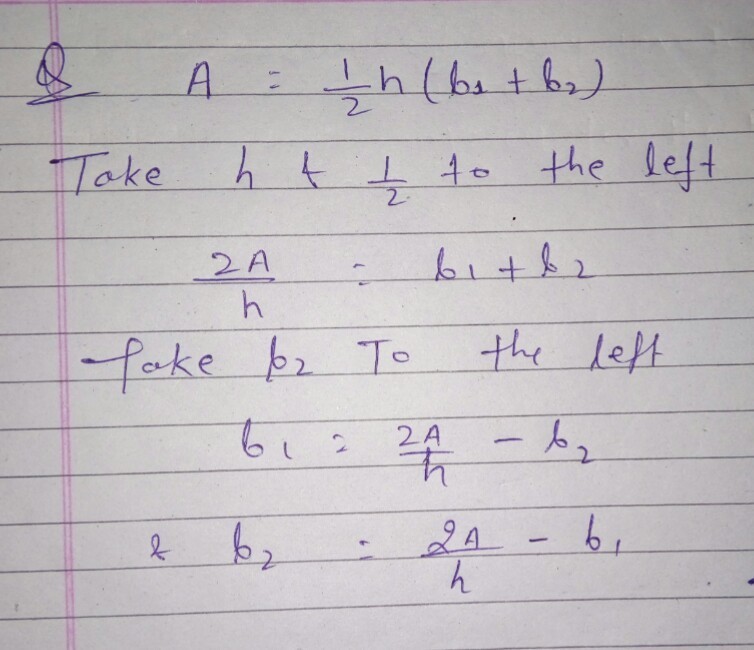 Q A = 1/2 h (b1 + b2)
Take h & 1/2 to the left
2A/h = b1 + b2
Take b2 To the left
b1 = 2A/h - b2
& b2 = 2A/h - b1